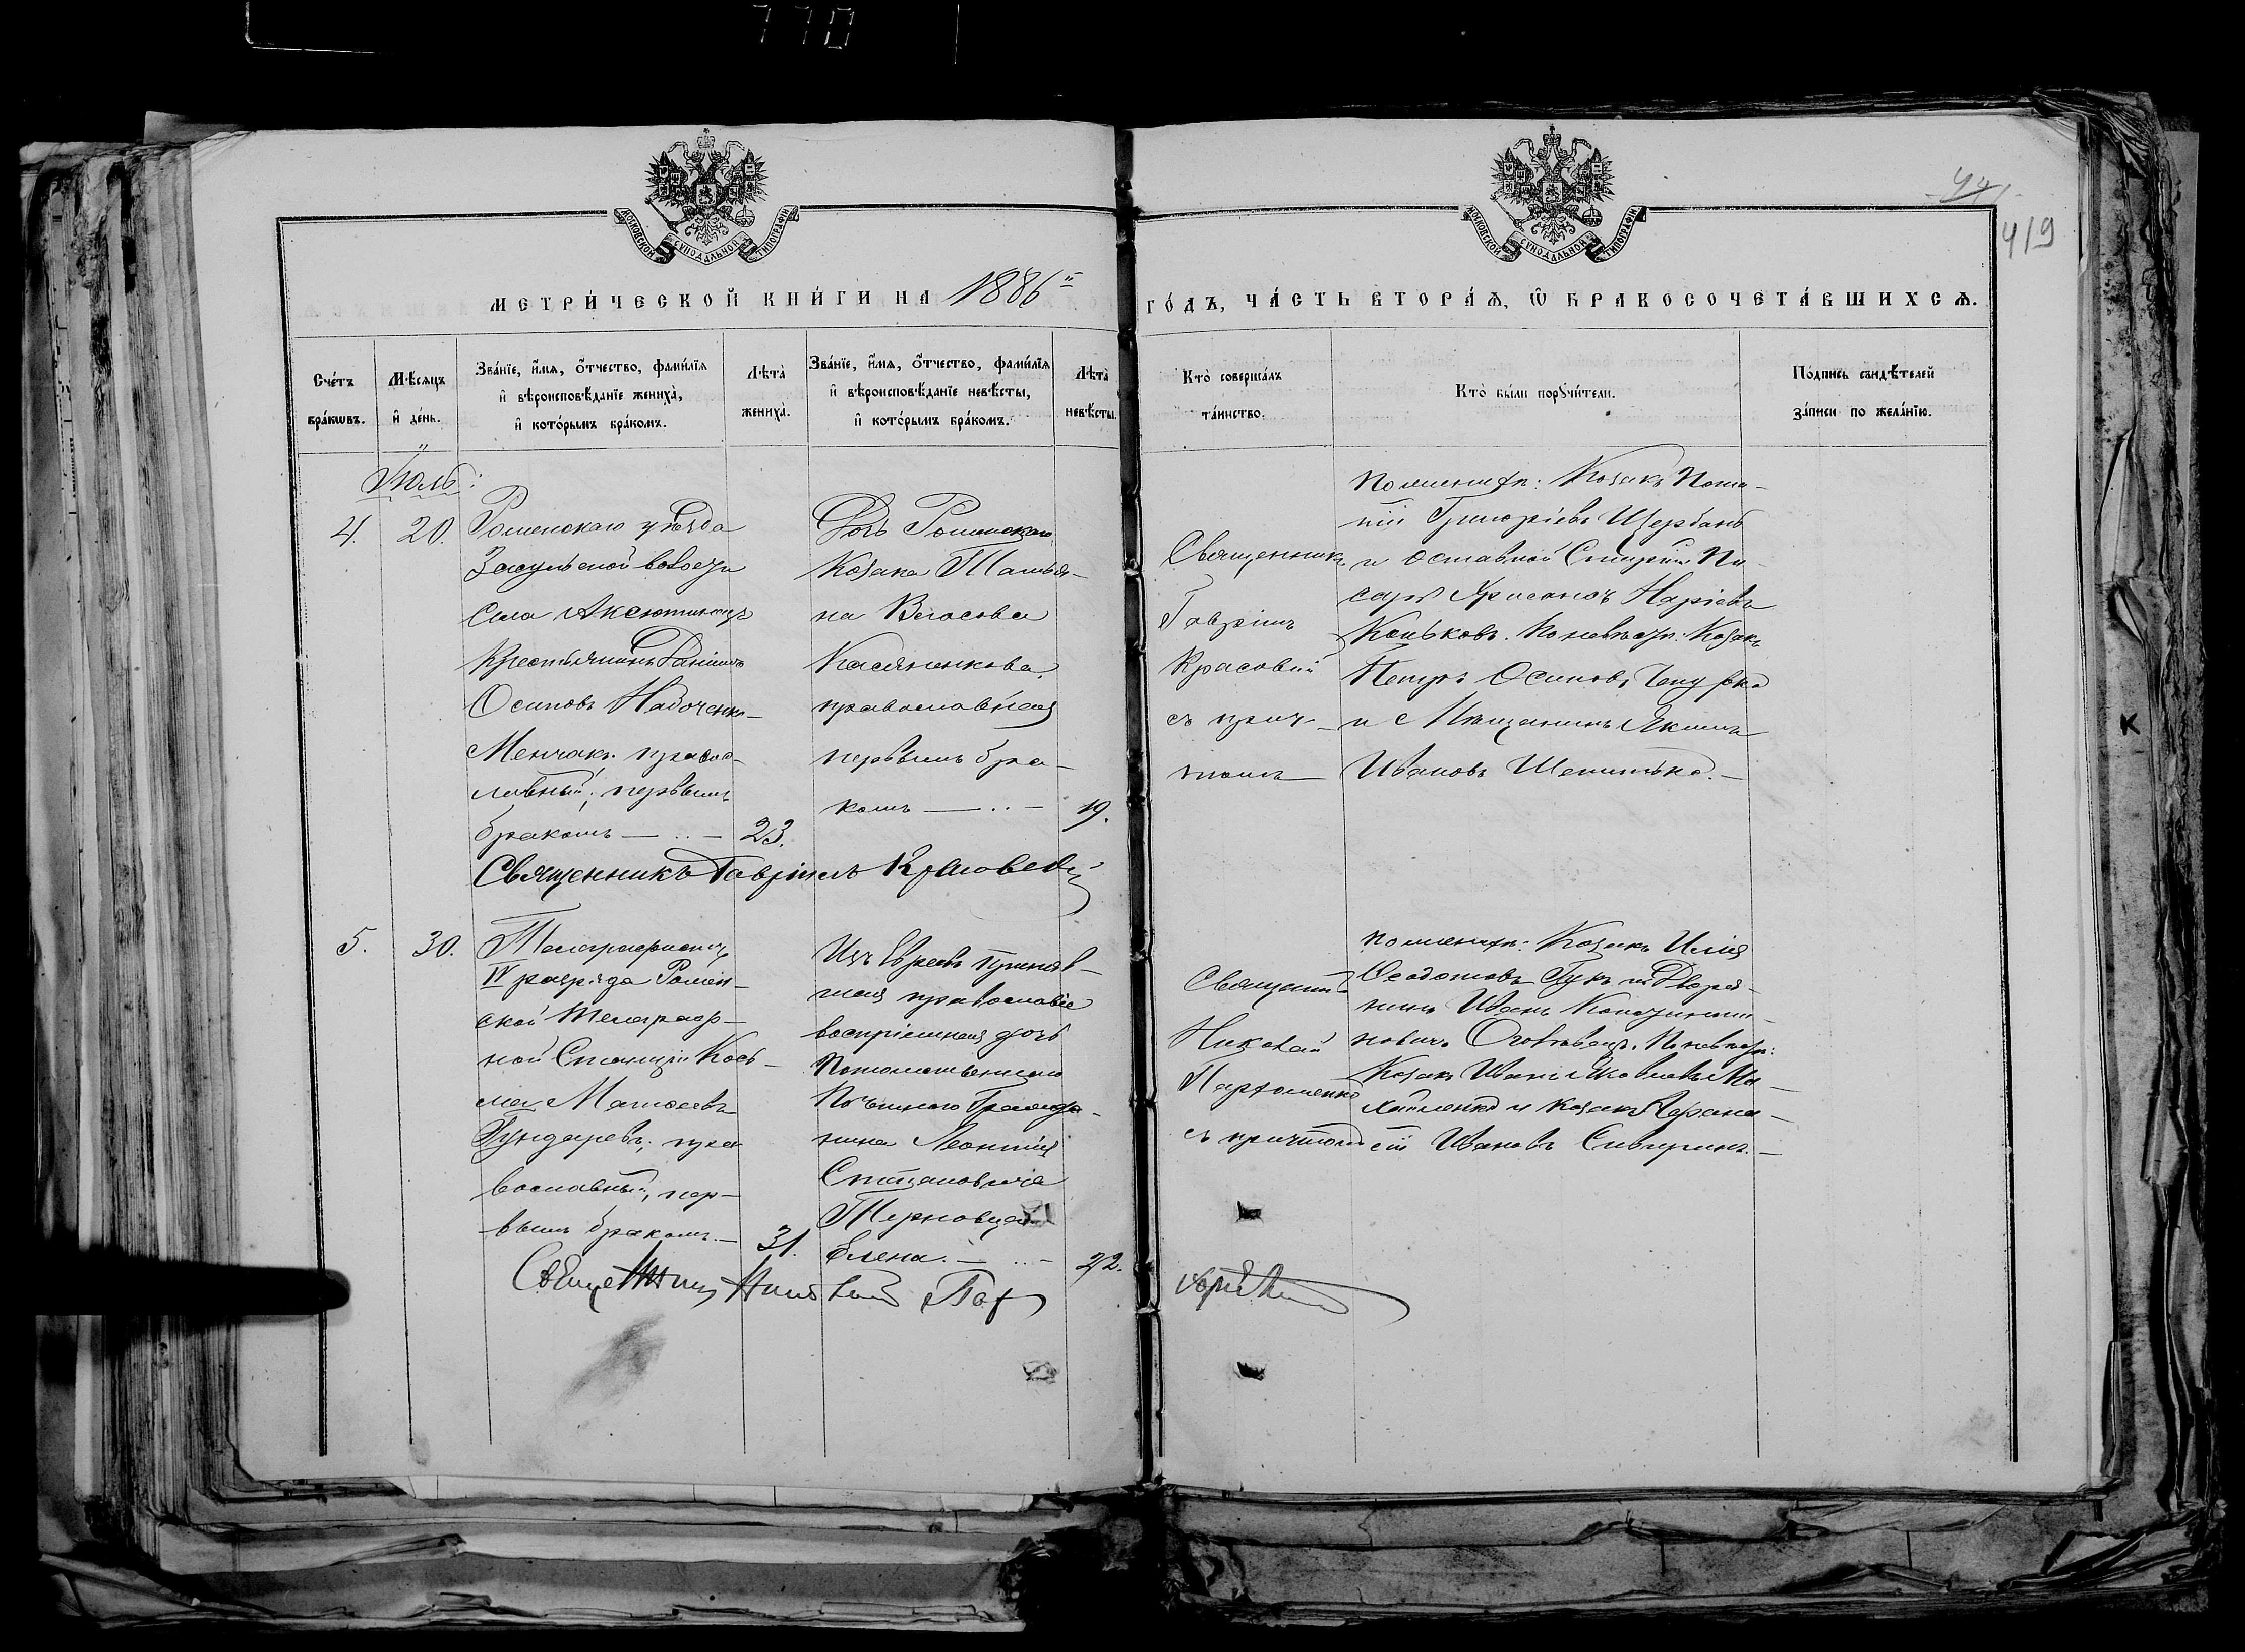 770
419
МОСКОВСКОЙ СѴНОДАЛЬНОЙ ТИПОГРАФІИ
МОСКОВСКОЙ СѴНОДАЛЬНОЙ ТИПОГРАФІИ
МЕТРИ́ЧЕСКОЙ КНИ́ГИ НА 1886й
ГО́ДЪ, ЧА́СТЬ ВТОРА́Ѧ, Ѽ БРАКОСОЧЕТА́ВШИХСѦ.
Сче́тъ бра́кѡвъ.
Мѣ́сѧцъ и҆ де́нь.
Зва́нїе, и҆́мѧ, ѻ҆́тчество, фами́лїѧ
и҆ вѣроисповѣ́данїе жениха̀,
и҆ кото́рымъ бра́комъ.
Лѣта̀ жениха̀.
Зва́нїе, и҆́мѧ, ѻ҆́тчество, фами́лїѧ
и҆ вѣроисповѣ́данїе невѣ́сты,
и҆ кото́рымъ бра́комъ.
Лѣта̀ невѣ́сты.
Кто̀ соверша́лъ та́инство.
Кто̀ бы́ли порꙋчи́тели.
По́дпись свидѣ́телей за́писи по жела́нїю.
Іюль:
4.
20.
Роменскаго уѣзда
Засульской волости
Села Аксютинецъ
Крестьянинъ Даніилъ
Осиповъ Надоченко
Менчакъ. правос-
лавный, первымъ
бракомъ — .. —
23.
Дочь Роменскаго
Козака Татья-
на Власова
Касяненкова,
православная
первымъ бра-
комъ — .. —
19.
Священникъ
Гавріилъ
Красовскій
съ прич-
томъ
по женихѣ: Козакъ Пота-
пій Григоріевъ Щербань
и отставной Старшій Пи-
сарь
Коньковъ. По невѣстѣ: Козакъ
Петръ Осиповъ
и Мѣщанинъ Якимъ
Ивановъ
Священникъ Гавріилъ Красовскій
5.
30.
Телеграфистъ
IV разряда Ромен-
ской Телеграф-
ной Станціи Кось-
ма Матѳеевъ
Гундаревъ, пра
вославный, пер-
вымъ бракомъ. —
31.
Изъ Евреевъ приняв-
шая православіе
воспріемная дочь
Потомственнаго
Почетнаго Гражда-
нина Леонтія
Степановича
Терновца
Елена. — .. —
22.
Священникъ
Николай
Пархоменко
съ причтомъ
по женихѣ: Козакъ Илія
Ѳеодотовъ Гукъ и Дворя-
нинъ Иванъ Константи-
новичъ По невѣстѣ:
Козакъ Иванъ Яковлевъ Ми-
хайленко и козакъ Аѳана-
сій Ивановъ
Священникъ Николай Пархоменко